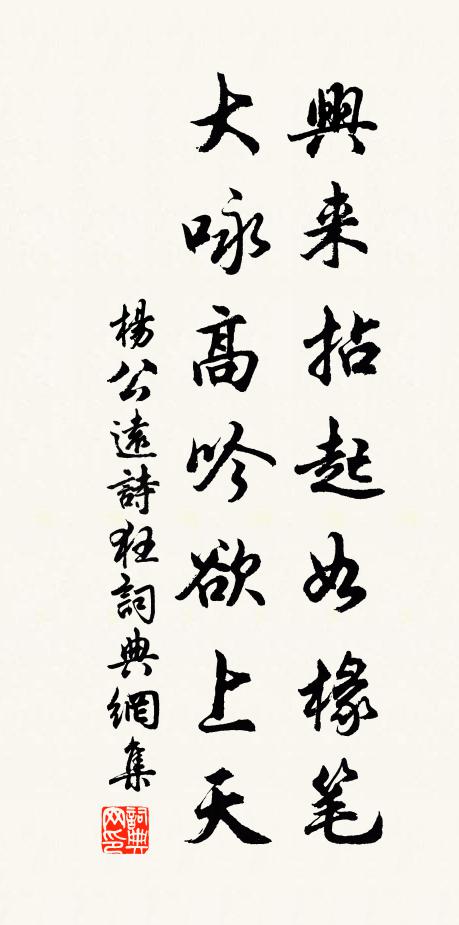 興来拈起如椽笔
大咏高吟欲上天
楊公遠詩狂詞典網集
詞典网印